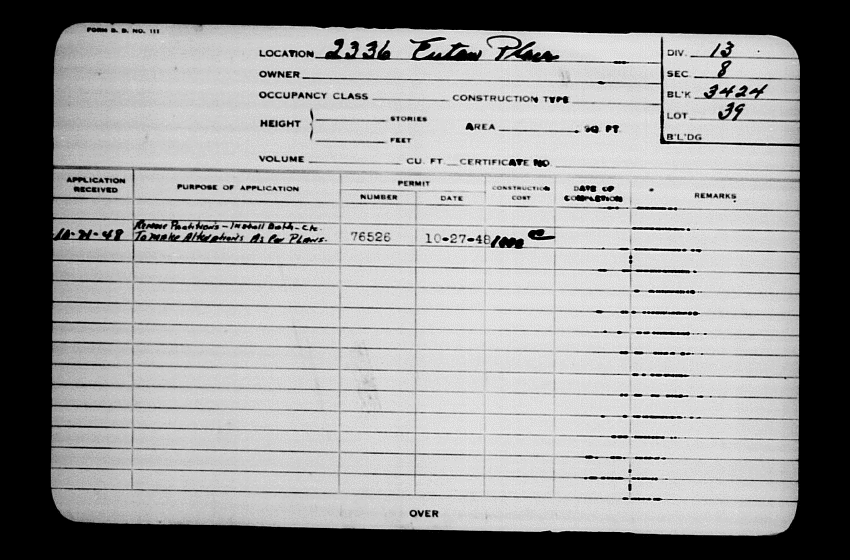 FORM B. D. NO. 111
LOCATION 2336 Eutaw Place
OWNER
OCCUPANCY CLASS CONSTRUCTION TYPE
HEIGHT STORIES
FEET
AREA SQ. FT.
VOLUME CU. FT. CERTIFICATE NO.
DIV. 13
SEC. 8
BL'K 3424
LOT 39
B'L'DG
APPLICATION RECEIVED PURPOSE OF APPLICATION PERMIT NUMBER DATE CONSTRUCTION COST DATE OF COMPLETION REMARKS
Remove Partitions - Install Bath - Etc.
10-21-48 To make Alterations As Per Plans. 76526 10-27-48 1000
OVER